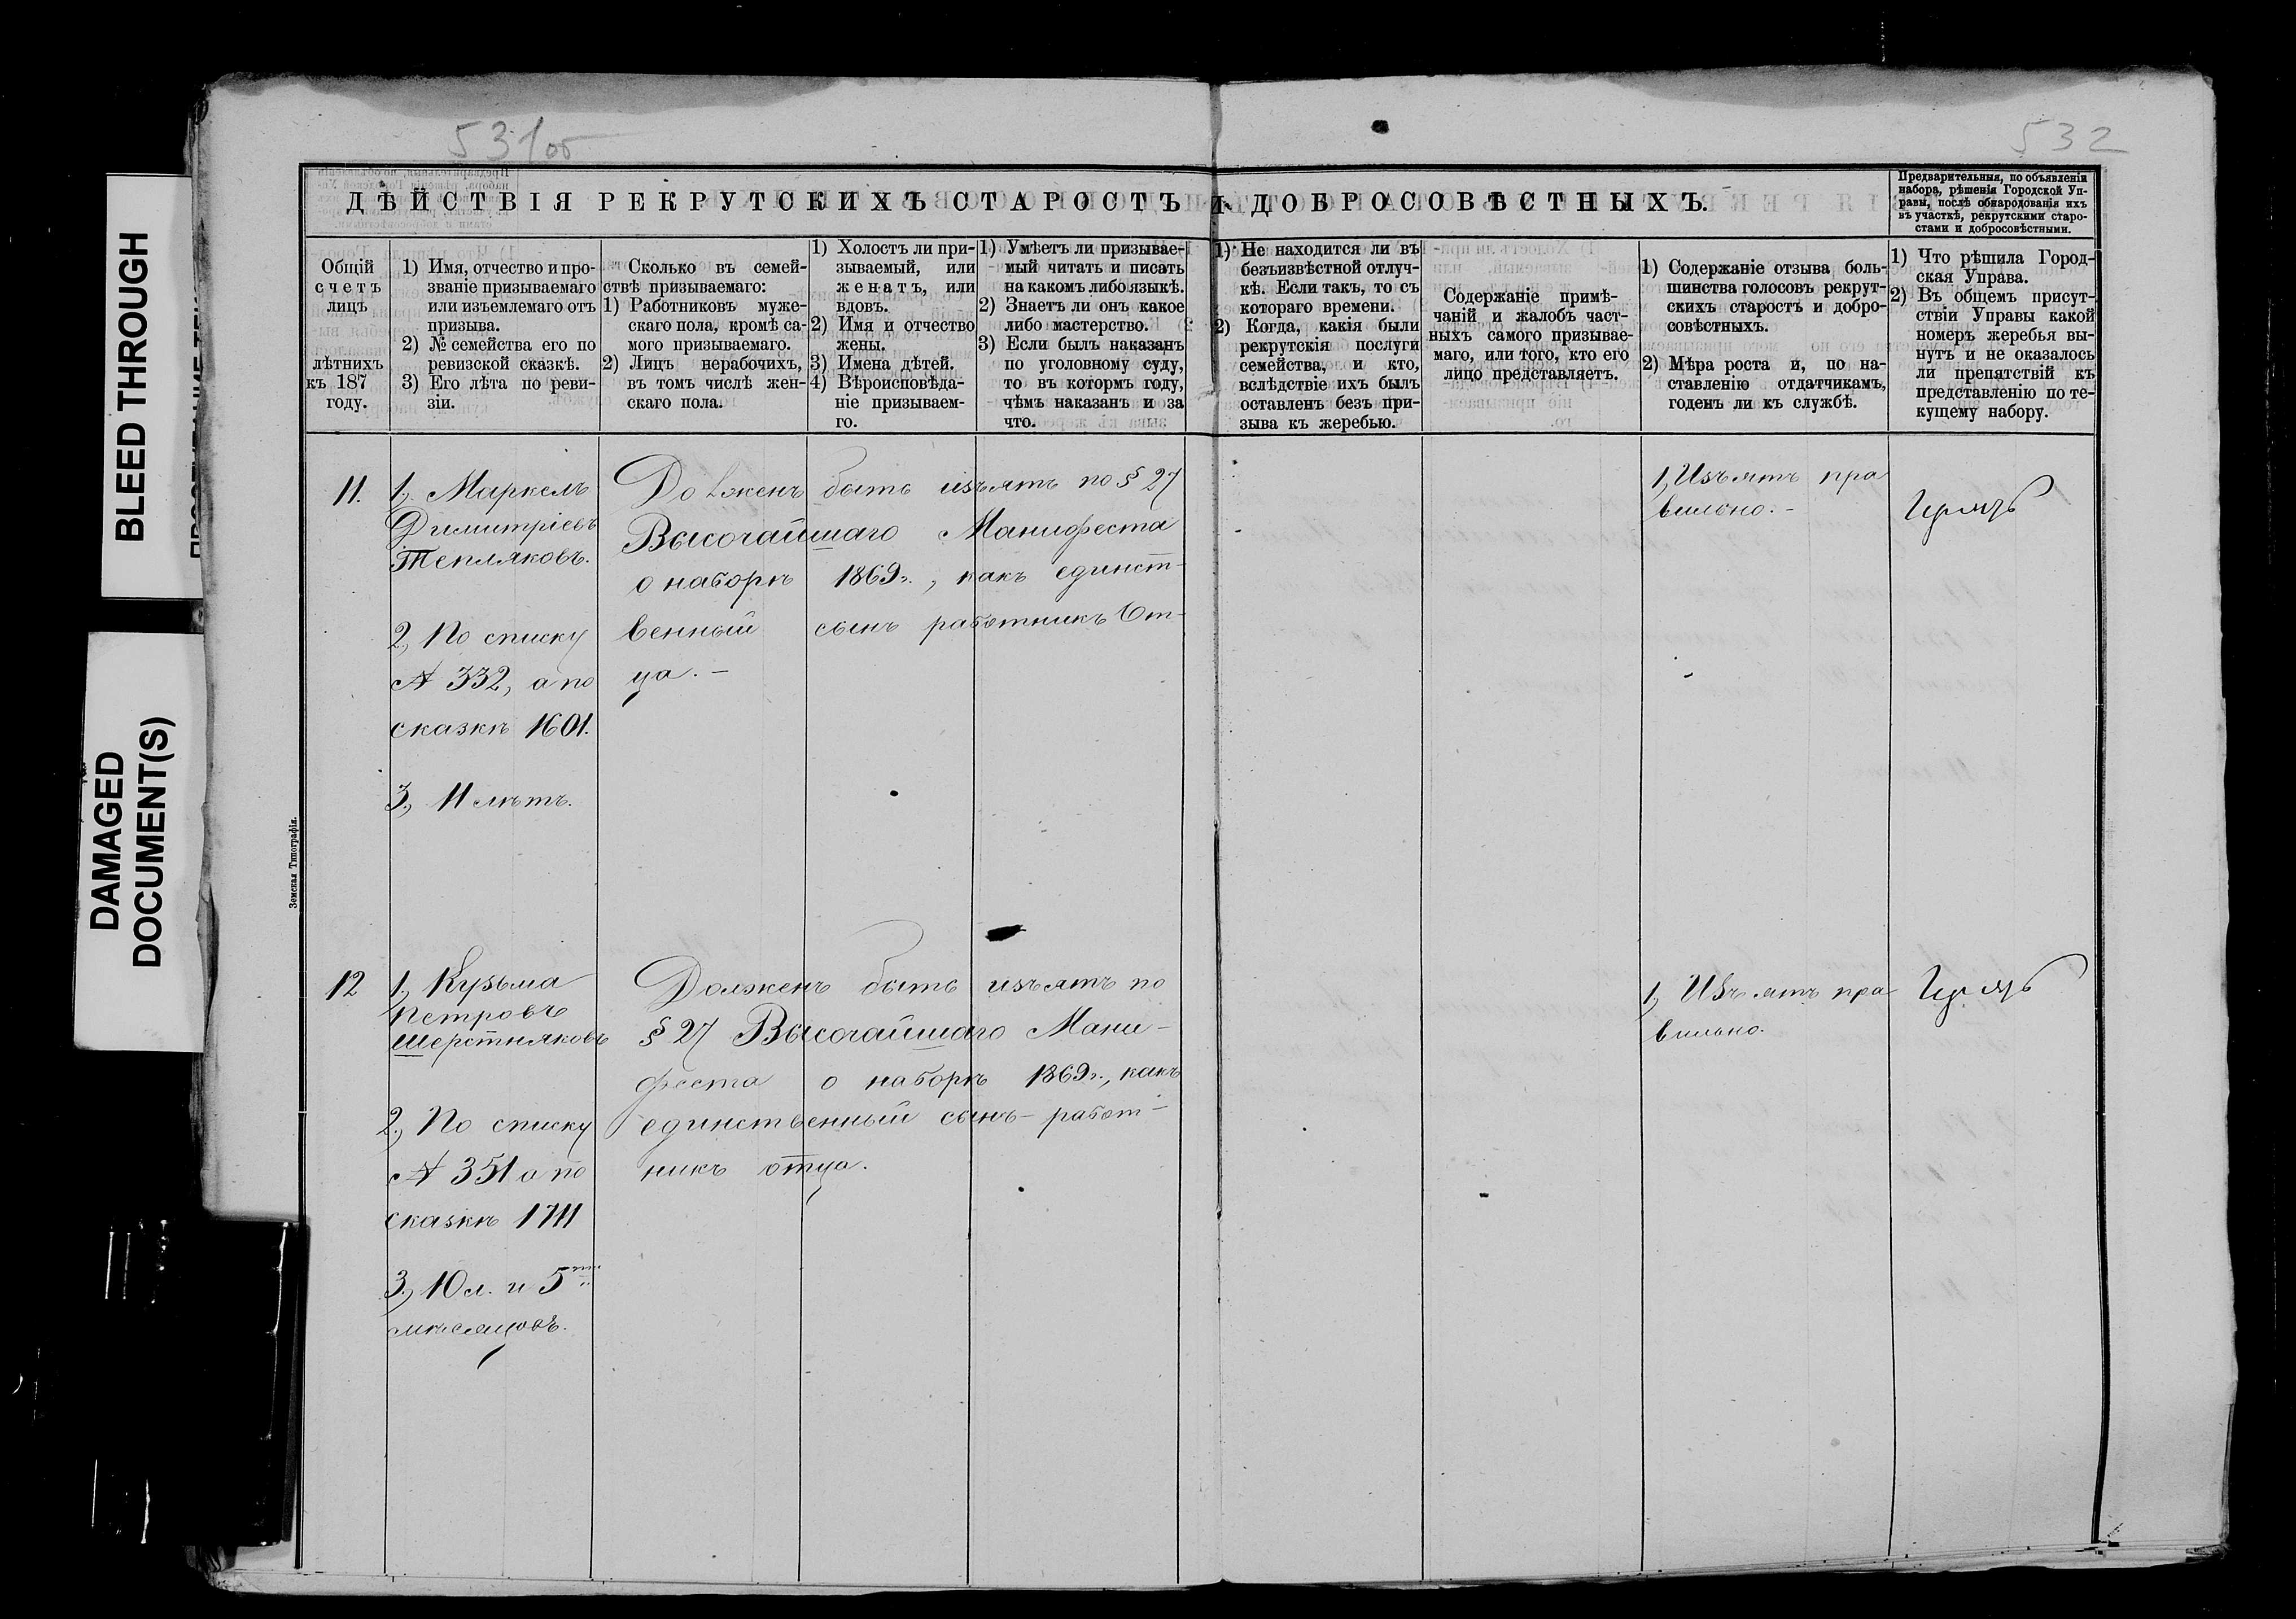 BLEED THROUGH
DAMAGED
DOCUMENT(S)
531об
532
ДѢЙСТВІЯ РЕКРУТСКИХЪ СТАРОСТЪ И ДОБРОСОВѢСТНЫХЪ.
Предварительныя, по объявленіи
набора, рѣшенія Городской Уп-
равы, послѣ обнародованія ихъ
въ участкѣ, рекрутскими старо-
стами и добросовѣстными.
Общій
счетъ
лицъ
лѣтнихъ
къ 187
году.
1) Имя, отчество и про-
званіе призываемаго
или изъемлемаго отъ
призыва.
2) № семейства его по
ревизской сказкѣ.
3) Его лѣта по реви-
зіи.
Сколько въ семей-
ствѣ призываемаго:
1) Работниковъ муже-
скаго пола, кромѣ са-
мого призываемаго.
2) Лицъ нерабочихъ,
въ томъ числѣ жен-
скаго пола.
1) Холостъ ли при-
зываемый, или
женатъ, или
вдовъ.
2) Имя и отчество
жены.
3) Имена дѣтей.
4) Вѣроисповѣда-
ніе призываем-
го.
1) Умѣетъ ли призывае-
мый читать и писать
на какомъ либо языкѣ.
2) Знаетъ ли онъ какое
либо мастерство.
3) Если былъ наказанъ
по уголовному суду,
то въ котормъ году,
чѣмъ наказанъ и за
что.
1) Не находится ли въ
безъизвѣстной отлуч-
кѣ. Если такъ, то съ
котораго времени.
2) Когда, какія были
рекрутскія послуги
семейства, и кто,
вслѣдствіе ихъ былъ
оставленъ безъ при-
зыва къ жеребью.
Содержаніе примѣ-
чаній и жалобъ част-
ныхъ самого призывае-
маго, или того, кто его
лицо представляетъ.
1) Содержаніе отзыва боль-
шинства голосовъ рекрут-
скихъ старостъ и добро-
совѣстныхъ.
2) Мѣра роста и, по на-
ставленію отдатчикамъ,
годенъ ли къ службѣ.
1) Что рѣшила Город-
ская Управа.
2) Въ общемъ присут-
ствіи Управы какой
номеръ жеребья вы-
нутъ и не оказалось
ли препятствій къ
представленію по те-
кущему набору.
11.
1, Маркелъ
Димитріевъ
Тепляковъ.
2, По списку
№ 332, а по
сказкѣ 1601.
3, 11 лѣтъ.
Долженъ быть изъятъ по § 27
Высочайшаго Манифеста
о наборѣ 1869 г., какъ единст-
венный сынъ работникъ От-
ца. –
1, Изъятъ пра
вильно. –
12
1, Кузьма
Петровъ
Шерстняковъ
2, По списку
№ 351 а по
сказкѣ 1711
3, 10 л. и 5ти
мѣсяцовъ.
Долженъ быть изъятъ по
§ 27 Высочайшаго Мани-
феста о наборѣ 1869 г., какъ
единственный сынъ – работ-
никъ отца.
1, Изъятъ пра
вильно.
Земская Типографія.